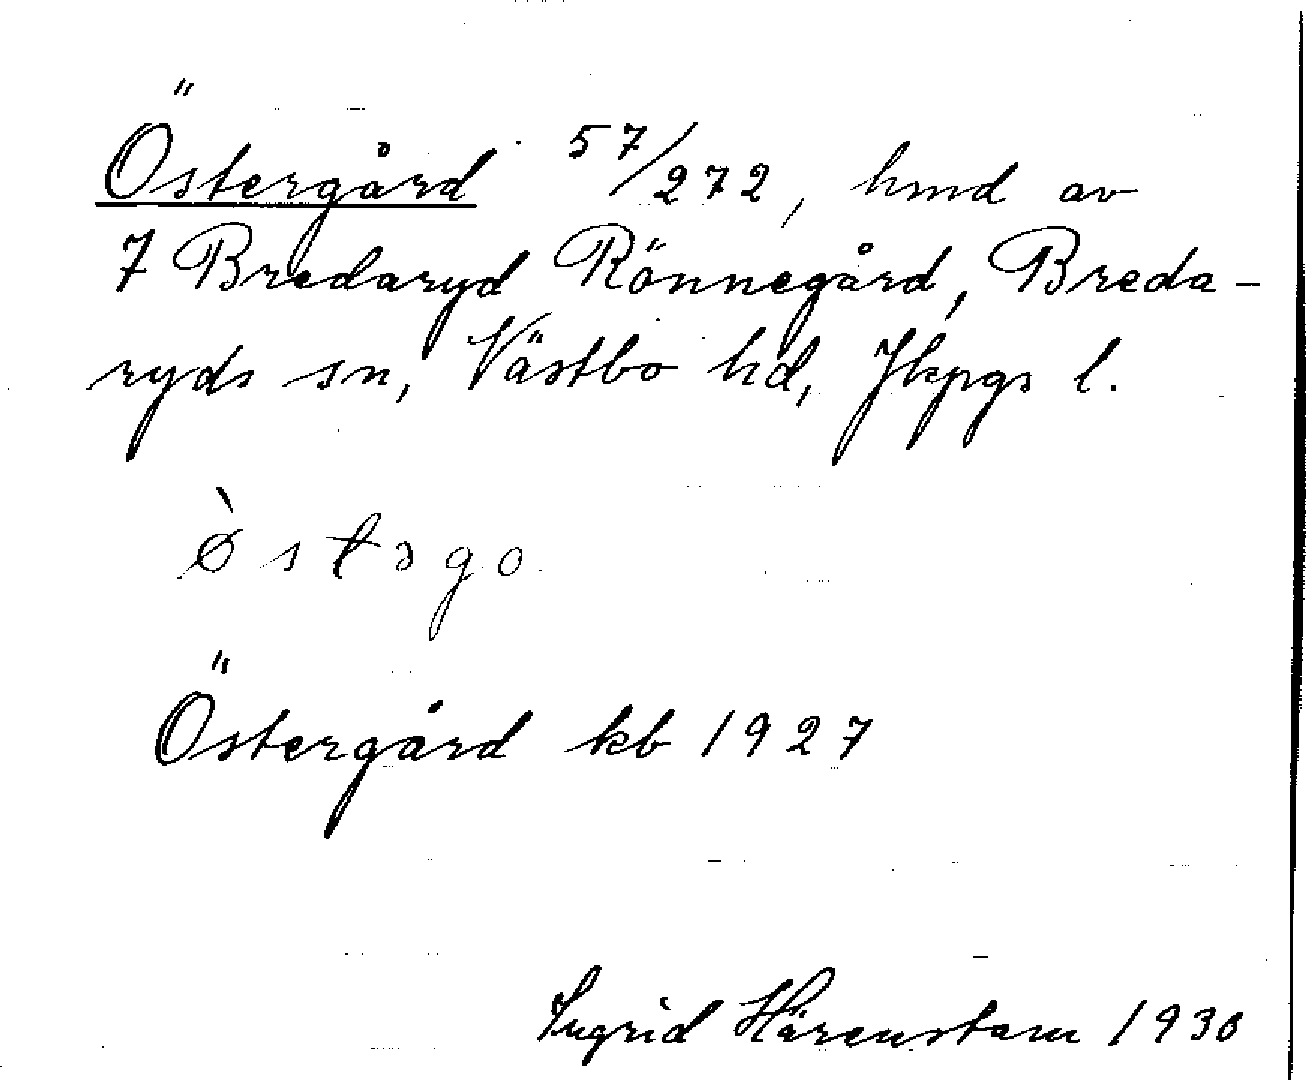 Östergård 57/272, hmd av
7 Bredaryd Rönnegård, Breda-
ryds sn, Västbo hd, Jkpgs l.
ø̀stəgo
Östergård kb 1927
Ingrid Härenstam 1930